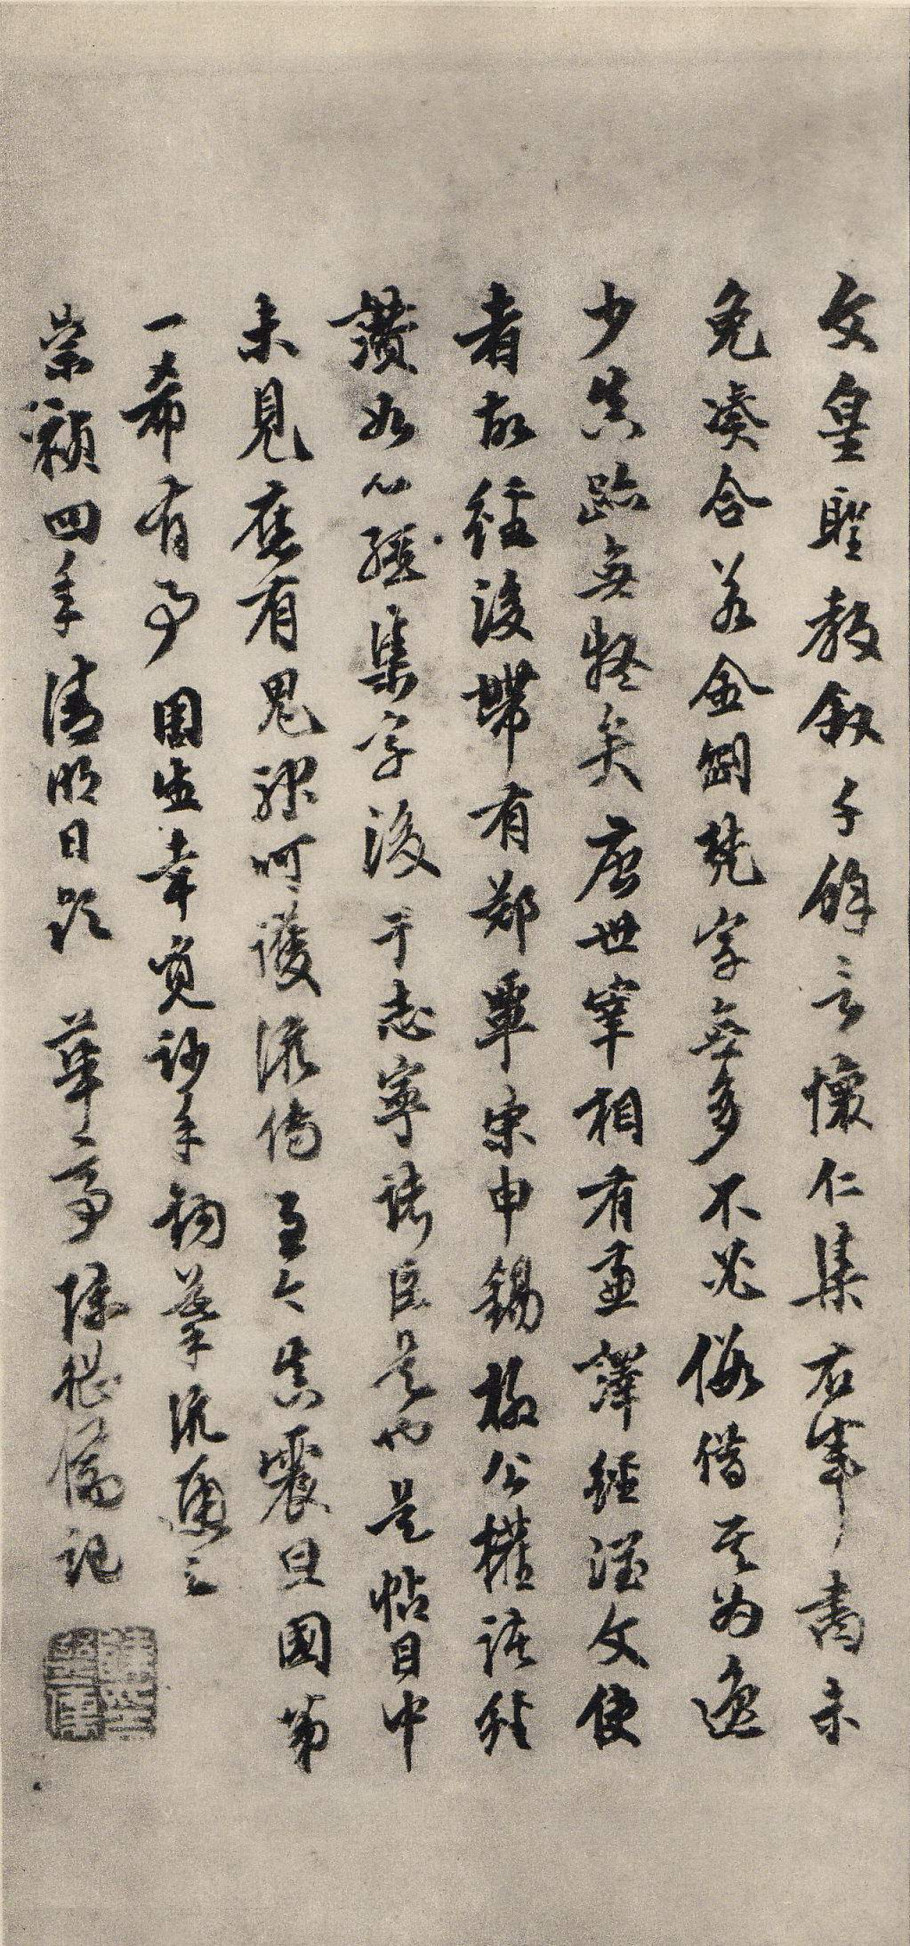 文皇聖教叙千餘言懷仁集右軍書未
免湊合若金剛梵字無多不必假借其為逸
少真跡無疑矣唐世宰相有兼譯經潤文使
者故經後帶有鄭覃宋申錫柳公權
讚如心經集字後于志寧諸臣是也是帖目中
未見應有鬼神呵護流傳至今真震旦國第
一希有事生幸覓妙手鉤摹流通之
崇禎四年清明日題 華亭陳繼儒記